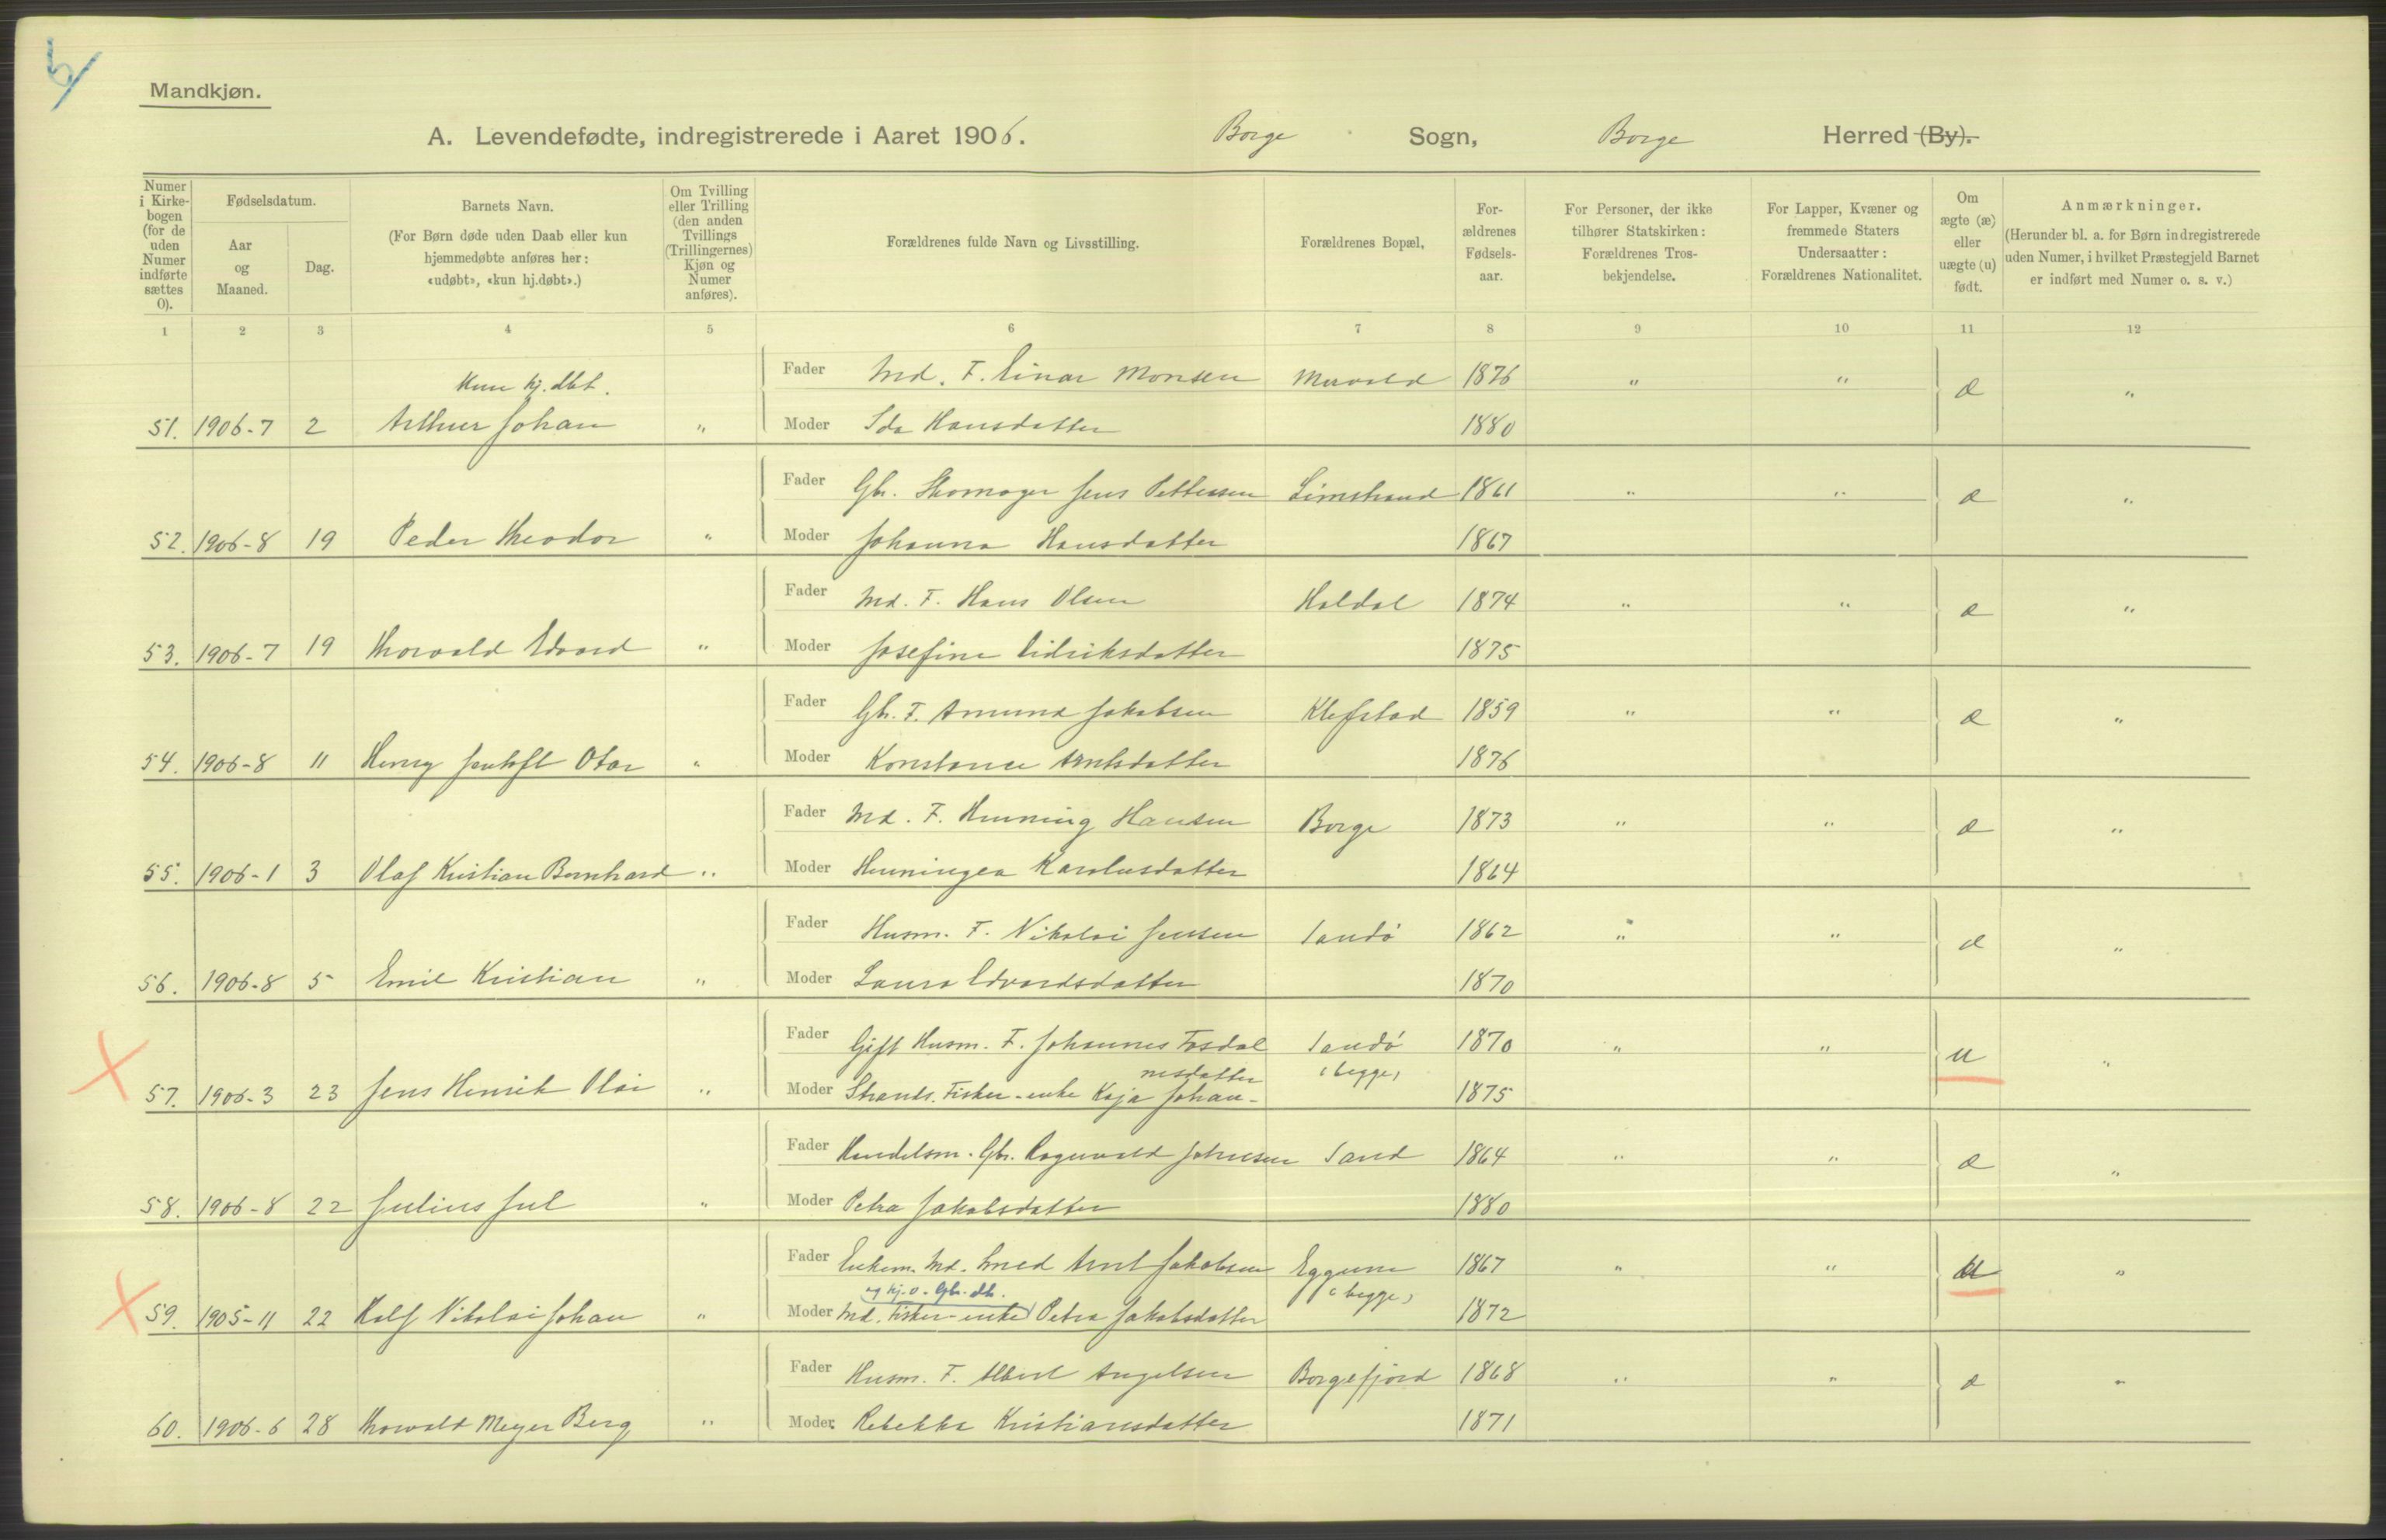 5/
Mandkjøn.
A. Levendefødte, indregistrerede i Aaret 1906. Borge Sogn, Borge Herred (By).
Numer i Kirkebogen (for de uden Numer indførte sættes 0). Fødselsdatum. Aar og Maaned. Dag. Barnets Navn. (For Børn døde uden Daab eller kun hjemmedøbte anføres her: «udøbt», «kun hj.døbt».) Om Tvilling eller Trilling (den anden Tvillings (Trillingernes) Kjøn og Numer anføres). Forældrenes fulde Navn og Livsstilling. Forældrenes Bopæl, Forældrenes Fødselsaar. For Personer, der ikke tilhører Statskirken: Forældrenes Trosbekjendelse. For Lapper, Kvæner og fremmede Staters Undersaatter: Forældrenes Nationalitet. Om ægte (æ) eller uægte (u) født. Anmærkninger. (Herunder bl. a. for Børn indregistrerede uden Numer, i hvilket Præstegjeld Barnet er indført med Numer o. s. v.)
1 2 3 4 5 6 7 8 9 10 11 12
Kun hj. dbt. Fader Md. F. Einar Monsen 1876 " " æ "
51. 1906-7 2 Arthur Johan " Moder Ida Hansdatter 1880
Fader Gbr. Skomager Jens Pettersen Limstrand 1861 " " æ "
52. 1906-8 19 Peder Theodor " Moder Johanna Hansdatter 1867
Fader Md. F. Hans Olsen Haldal 1874 " " æ "
53. 1906-7 19 Thorvald Edvard " Moder Josefine Didriksdatter 1875
Fader Gbr. F. Amund Jakobsen Klefstad 1859 " " æ "
54. 1906-8 11 Henry Otar " Moder Konstance Arntsdatter 1876
Fader Md. F. Henning Hansen Borge 1873 " " æ "
55. 1906-1 3 Olaf Kristian Bernhard " Moder Henningea Karolusdatter 1864
Fader Husm. F. Nikolai Jensen Sandø 1862 " " æ "
56. 1906-8 5 Emil Kristian " Moder Laura Edvardsdatter 1870
Fader Gift Husm. F. Johannes Fosdal Sandø 1870 " " u "
57. 1906-3 23 Jens Henrik Olai " Moder Strands. Fisker-enke Kaja Johannesdatter (begge) 1875
Fader Handelsm. Gbr. Ragnvald Johnsen Sand 1864 " " æ "
58. 1906-8 22 Julius Jul " Moder Petra Jakobsdatter 1880
Fader Enkem. Md. Smed Arnt Jakobsen Eggum 1867 " " u "
og hj. v. Gbr. dtr. (begge)
59. 1905-11 22 Rolf Nikolai Johan " Moder Md. Fisker-enke Petra Jakobsdatter 1872
Fader Husm. F. Albert Angelsen Borgefjord 1868 " " æ "
60. 1906-6 28 Thorvald Meyer Berg " Moder Rebekka Kristiansdatter 1871